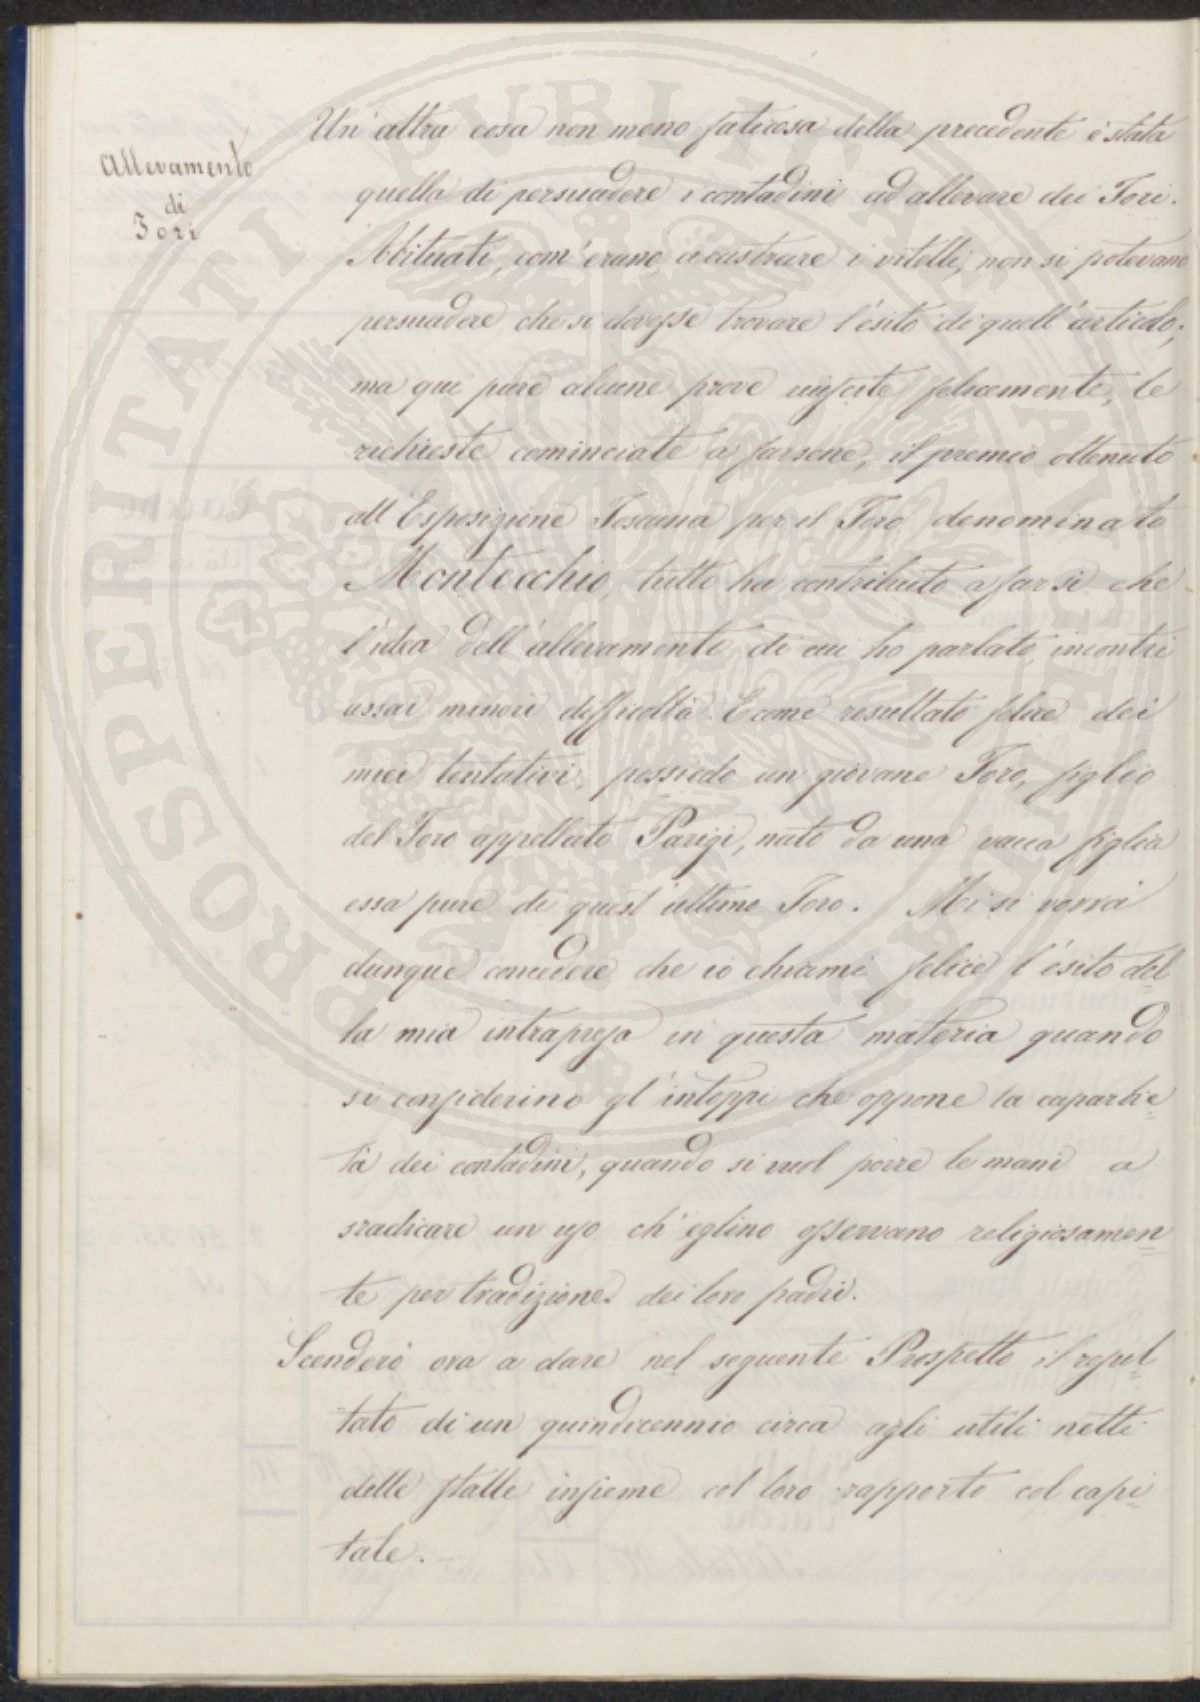 Allevamento
di
Tori
Un'altra cosa non meno faticosa della precedente è stata
quella di persuadere i contadini ad allevare dei Tori.
Abituati, com'erano, a castrare i vitelli, non si potevano
persuadere che si dovesse trovare l'esito di quell'articolo;
ma qui pure alcune prove riuscite felicemente, le
richieste cominciate a farsene, il premio ottenuto
all'Esposizione Toscana per il Toro denominato
Montecchio, tutto ha contribuito a far sì che
l'idea dell'allevamento di cui ho parlato, incontri
assai minori difficoltà. E come resultato felice dei
miei tentativi, possiedo un giovane Toro, figlio
del Toro appellato Parigi, nato da una vacca figlia
essa pure di quest'ultimo Toro. Mi si vorrà
dunque concedere che io chiami felice l'esito del=
la mia intrapresa in questa materia quando
si considerino gl'intoppi che oppone la caparbie=
tà dei contadini, quando si vuol porre le mani a
sradicare un uso ch'eglino osservano religiosamen=
te per tradizione dei loro padri.
Scenderò ora a dare nel seguente Prospetto il resul=
tato di un quindicennio circa agli utili netti
delle stalle insieme col loro rapporto col capi=
tale.
PROSPERITATI PUBLICAE AUGENDAE